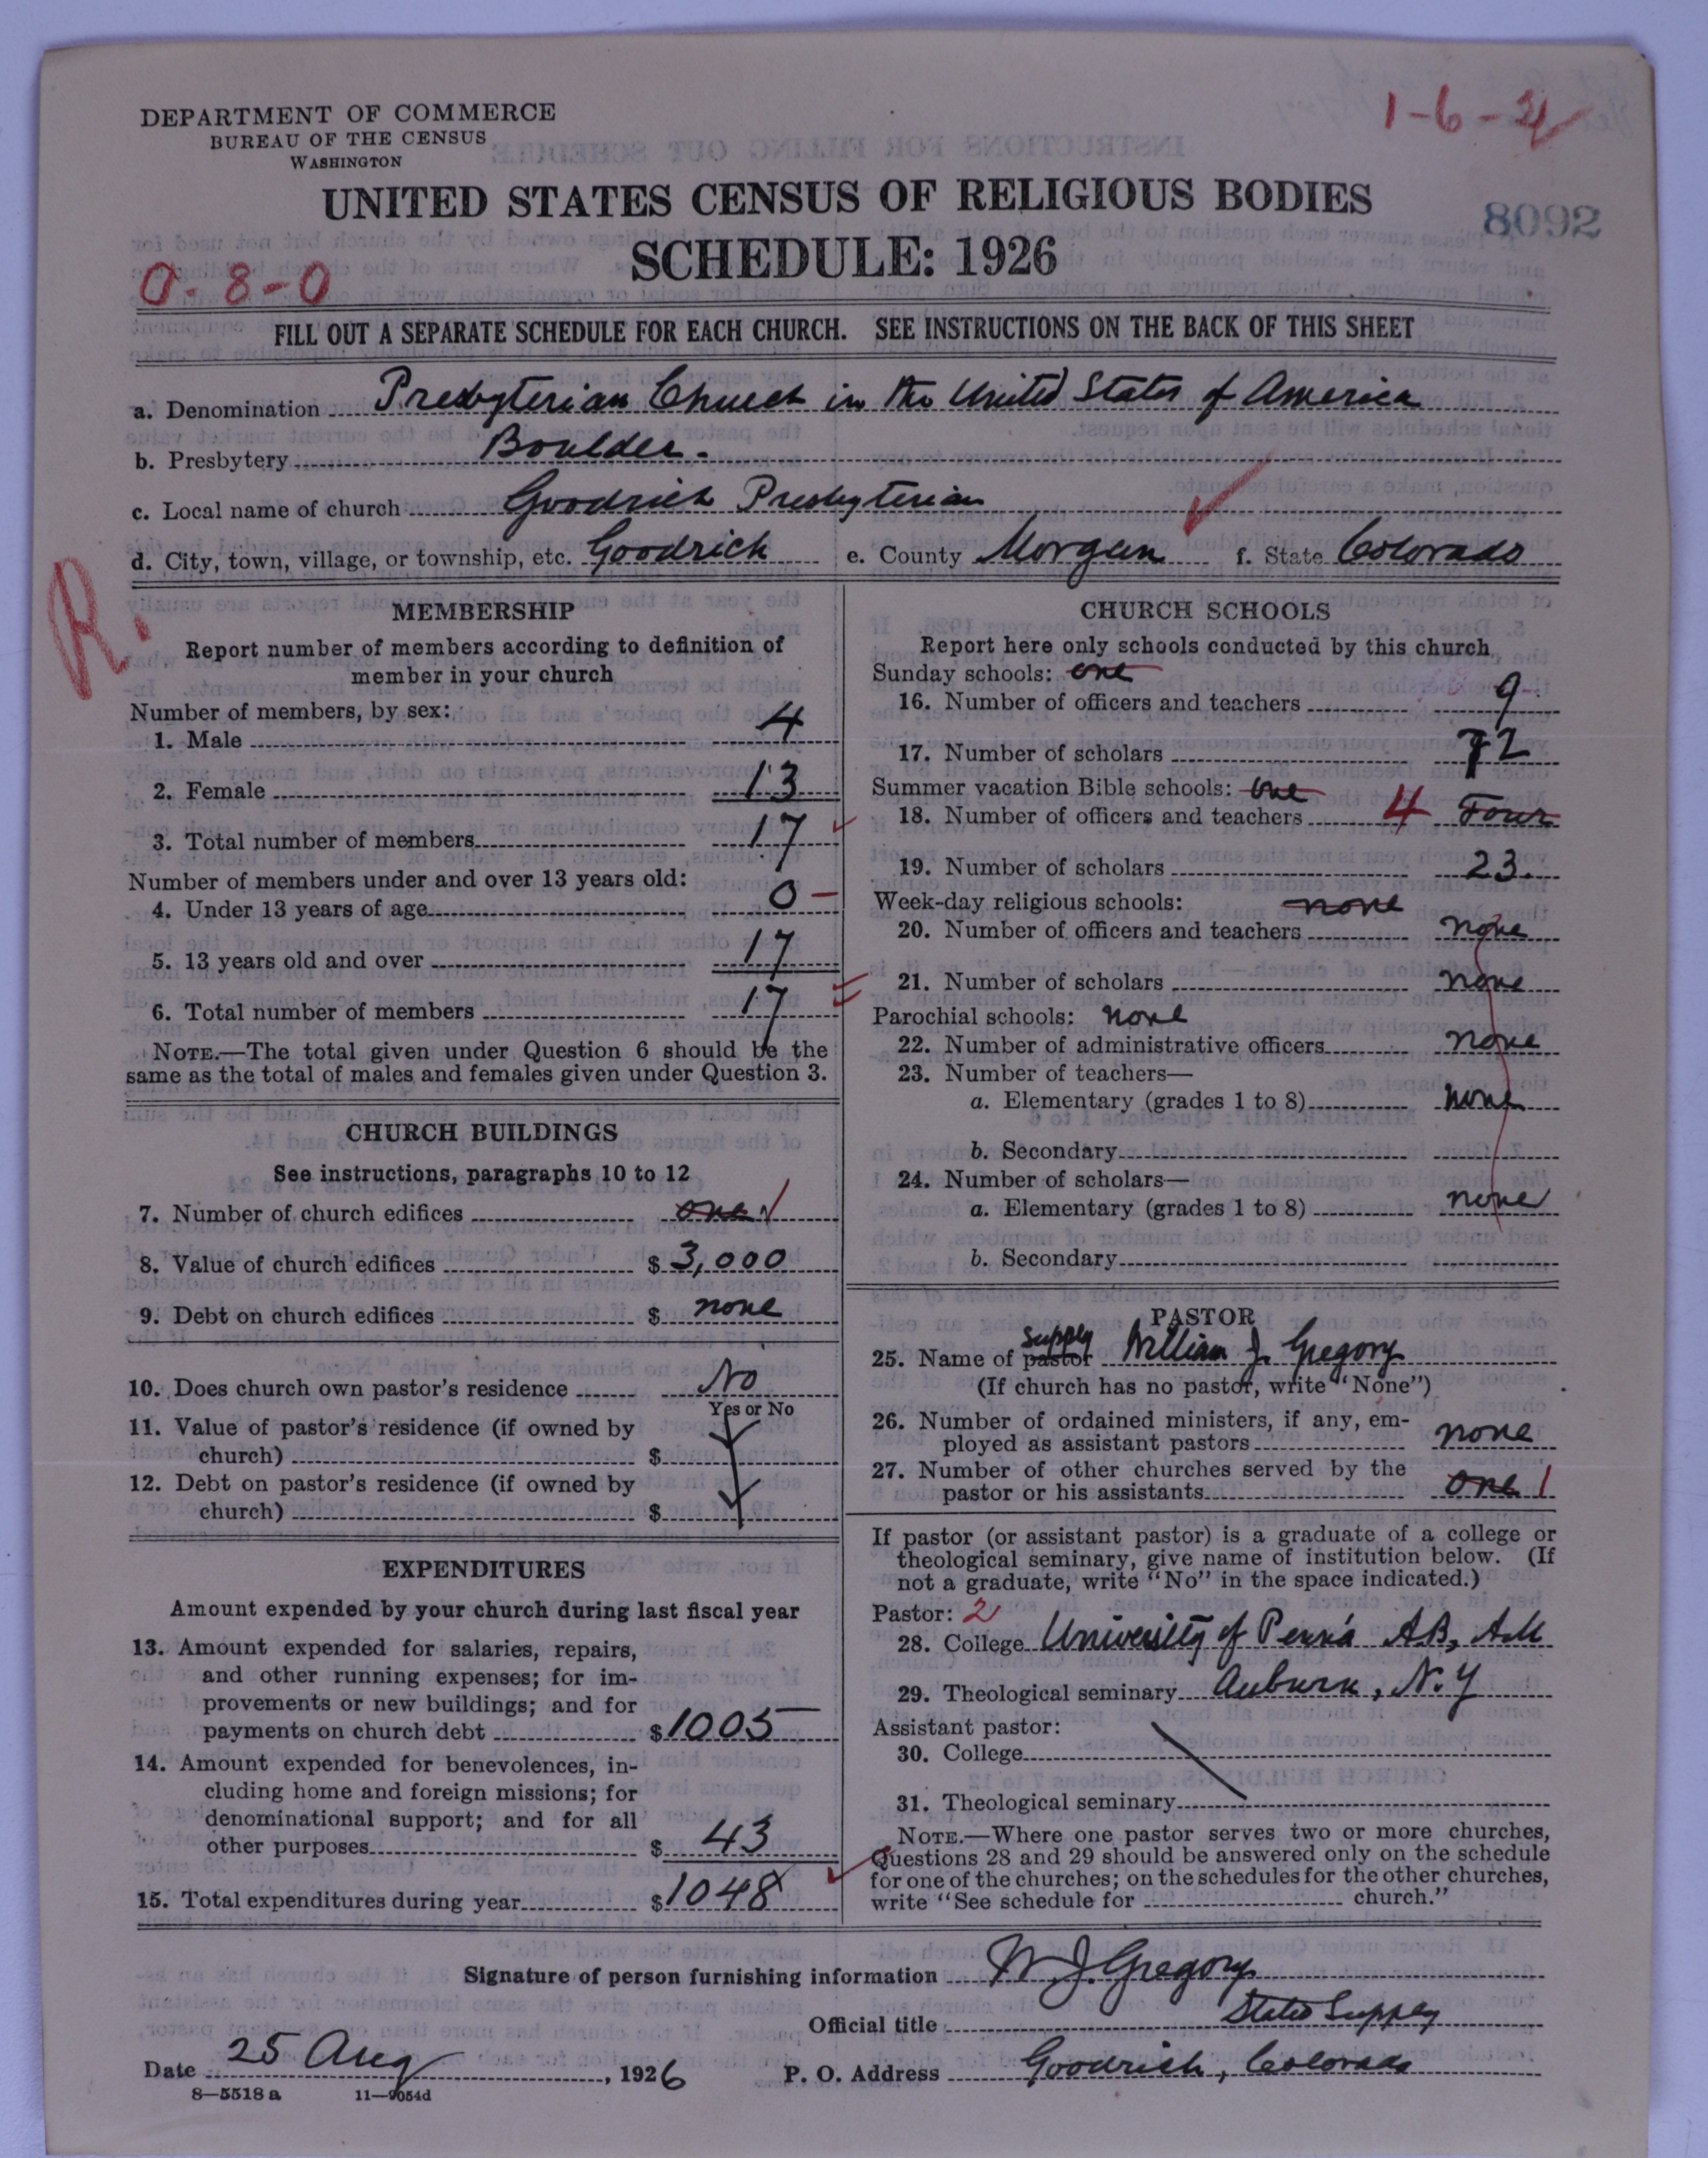 1-6-24
DEPARTMENT OF COMMERCE
BUREAU OF THE CENSUS
WASHINGTON
UNITED STATES CENSUS OF RELIGIOUS BODIES
8092
SCHEDULE: 1926
0-8-0
FILL OUT A SEPARATE SCHEDULE FOR EACH CHURCH. SEE INSTRUCTIONS ON THE BACK OF THIS SHEET
a. Denomination Presbyterian Church in the United States of America
b. Presbytery Boulder.
c. Local name of church Goodrich Presbyterian
d. City, town, village, or township, etc. Goodrich e. County Morgan f. State Colorado
R.
MEMBERSHIP
Report number of members according to definition of
member in your church
Number of members, by sex:
1. Male 4
2. Female 13
3. Total number of members 17
Number of members under and over 13 years old:
4. Under 13 years of age 0 –
5. 13 years old and over 17
6. Total number of members 17
NOTE.—The total given under Question 6 should be the
same as the total of males and females given under Question 3.
CHURCH BUILDINGS
See instructions, paragraphs 10 to 12
7. Number of church edifices one 1
8. Value of church edifices $ 3,000
9. Debt on church edifices $ none
10. Does church own pastor's residence No
Yes or No
11. Value of pastor's residence (if owned by
church) $
12. Debt on pastor's residence (if owned by
church) $
EXPENDITURES
Amount expended by your church during last fiscal year
13. Amount expended for salaries, repairs,
and other running expenses; for im-
provements or new buildings; and for
payments on church debt $ 1005
14. Amount expended for benevolences, in-
cluding home and foreign missions; for
denominational support; and for all
other purposes $ 43
15. Total expenditures during year $ 1048
CHURCH SCHOOLS
Report here only schools conducted by this church
Sunday schools: one
16. Number of officers and teachers 9
17. Number of scholars 72
Summer vacation Bible schools: one
18. Number of officers and teachers 4 Four
19. Number of scholars 23.
Week-day religious schools: none
20. Number of officers and teachers none
21. Number of scholars none
Parochial schools: none
22. Number of administrative officers none
23. Number of teachers—
a. Elementary (grades 1 to 8) none
b. Secondary
24. Number of scholars—
a. Elementary (grades 1 to 8) none
b. Secondary
PASTOR
supply
25. Name of pastor William J. Gregory
(If church has no pastor, write "None")
26. Number of ordained ministers, if any, em-
ployed as assistant pastors none
27. Number of other churches served by the
pastor or his assistants one 1
If pastor (or assistant pastor) is a graduate of a college or
theological seminary, give name of institution below. (If
not a graduate, write "No" in the space indicated.)
Pastor: 2
28. College University of Penn'a AB, AM
29. Theological seminary Auburn, N.Y
Assistant pastor:
30. College
31. Theological seminary
NOTE.—Where one pastor serves two or more churches,
Questions 28 and 29 should be answered only on the schedule
for one of the churches; on the schedules for the other churches,
write "See schedule for church."
Signature of person furnishing information W J. Gregory
Official title Stated Supply
Date 25 Aug, 1926 P. O. Address Goodrich, Colorado
8—5518 a 11—9054d